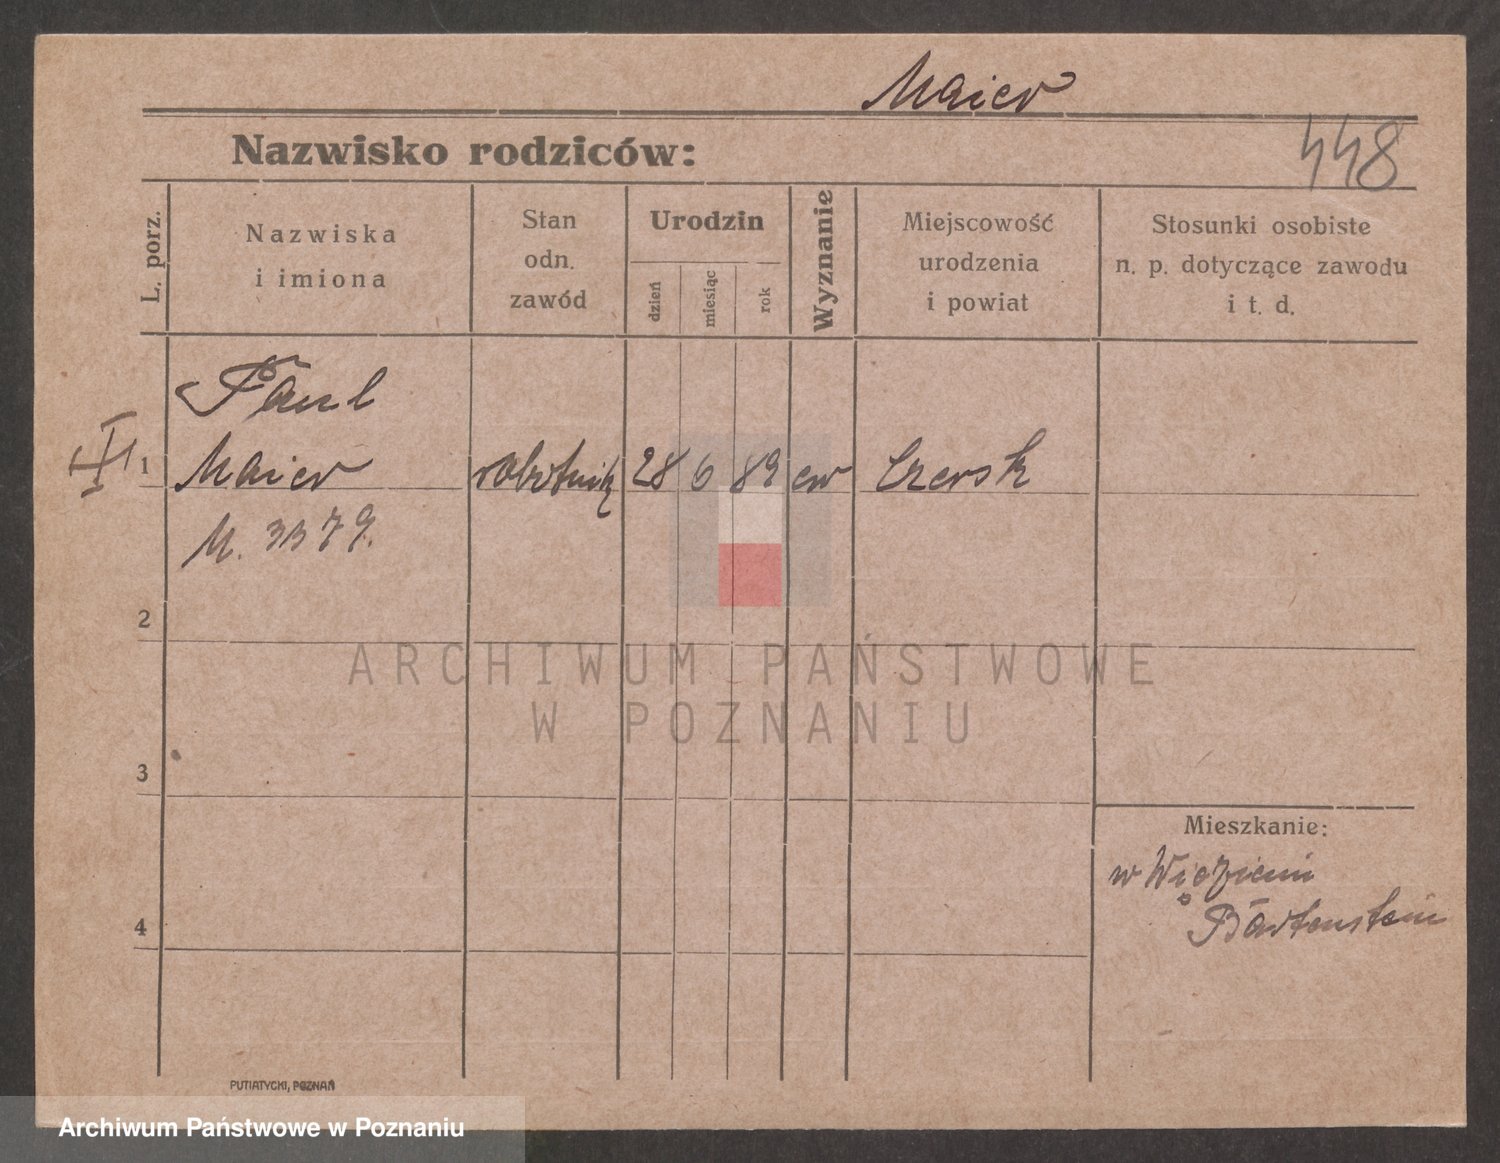 Maier
Nazwisko rodziców:
448
L. porz.
Nazwiska
i imiona
Stan
odn.
zawód
Urodzin
dzień
miesiąc
rok
Wyznanie
Miejscowość
urodzenia
i powiat
Stosunki osobiste
n. p. dotyczące zawodu
i t. d.
Paul
1 Maier robotnik 28 6 89 ew Czersk
M. 3379.
2
ARCHIWUM PAŃSTWOWE
W POZNANIU
3
Mieszkanie:
w Więzieniu
Bartenstein
4
PUTIATYCKI, POZNAŃ
Archiwum Państwowe w Poznaniu